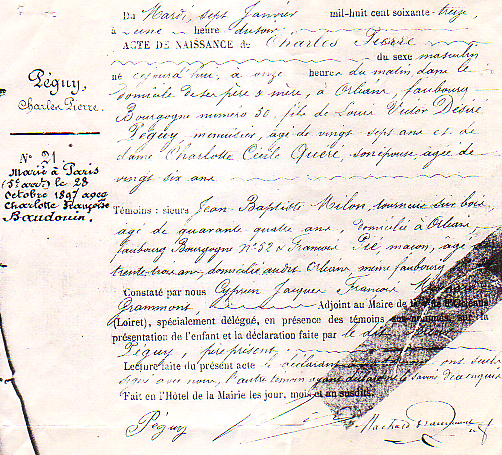 Péguy,
Charles Pierre.
N° 21.
Marié à Paris
(5e arrt) le 28
Octobre 1897 avec
Charlotte Françoise
Baudouin.
Du Mardi, sept Janvier mil-huit cent soixante-treize,
à une heure du soir.
ACTE DE NAISSANCE de Charles Pierre
du sexe masculin
né cejourd'hui, à onze heures du matin dans le
domicile de ses père & mère, à Orléans, faubourg
Bourgogne numéro 50, fils de Louis Victor Désiré
Péguy, menuisier, âgé de vingt sept ans et de
dame Charlotte Cécile Quéré, son épouse, âgée de
vingt six ans
Témoins : sieurs Jean-Baptiste Milon, tourneur sur bois
âgé de quarante quatre ans, domicilié à Orléans,
faubourg Bourgogne N° 52 & François Pie, maçon, âgé
trente trois ans, domicilié audit Orléans, même faubourg
Constaté par nous Cyprien Jacques François
Grammont Adjoint au Maire de la ville d'Orléans
(Loiret), spécialement délégué, en présence des témoins sus-nommés, sur la
présentation de l'enfant et la déclaration faite par le dit
Péguy, père présent,
Lecture faite du présent acte le déclarant
signé avec nous, l'autre témoin ayant déclaré ne savoir
Fait en l'Hôtel de la Mairie les jour, mois et an susdits.
Péguy Machard Grammont